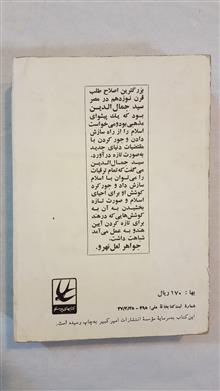 بزرگترین اصلاح طلب
قرن نوزدهم در مصر
سید جمال‌الدین
بود که یک پیشوای
مذهبی بود و می‌خواست
اسلام را از راه سازش
دادن و جور کردن با
مقتضیات دنیای جدید
به صورت تازه درآورد.
سید جمال‌الدین
می‌گفت که تمام ترقیات
را می‌توان با اسلام
سازش داد و جور کرد
کوشش او برای احیای
اسلام و صورت تازه
بخشیدن به آن به
کوشش‌هایی که در هند
برای تازه کردن آیین
هندو به عمل می‌آمد
شباهت داشت.
جواهر لعل نهرو.
بها: ۱۷۰ ریال
شمارهٔ ثبت کتابخانهٔ ملی: ۴۹۸-۳۷/۳/۲۸
این کتاب به‌سرمایهٔ مؤسسهٔ انتشارات امیرکبیر به‌چاپ رسیده است.